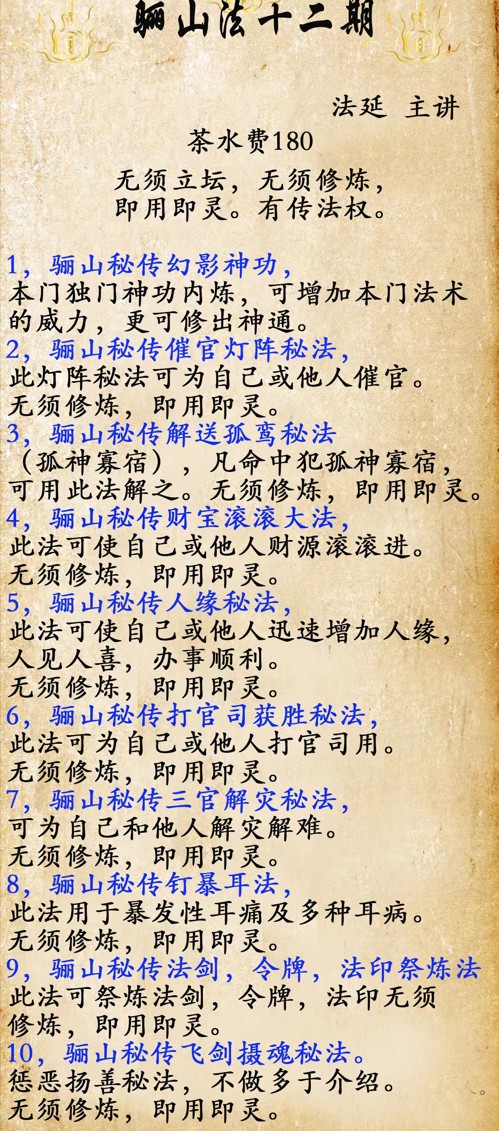 骊山法十二期
法延 主讲
茶水费180
无须立坛，无须修炼，
即用即灵。有传法权。
1，骊山秘传幻影神功，
本门独门神功内炼，可增加本门法术
的威力，更可修出神通。
2，骊山秘传催官灯阵秘法，
此灯阵秘法可为自己或他人催官。
无须修炼，即用即灵。
3，骊山秘传解送孤鸾秘法
（孤神寡宿），凡命中犯孤神寡宿，
可用此法解之。无须修炼，即用即灵。
4，骊山秘传财宝滚滚大法，
此法可使自己或他人财源滚滚进。
无须修炼，即用即灵。
5，骊山秘传人缘秘法，
此法可使自己或他人迅速增加人缘，
人见人喜，办事顺利。
无须修炼，即用即灵。
6，骊山秘传打官司获胜秘法，
此法可为自己或他人打官司用。
无须修炼，即用即灵。
7，骊山秘传三官解灾秘法，
可为自己和他人解灾解难。
无须修炼，即用即灵。
8，骊山秘传钉暴耳法，
此法用于暴发性耳痛及多种耳病。
无须修炼，即用即灵。
9，骊山秘传法剑，令牌，法印祭炼法
此法可祭炼法剑，令牌，法印无须
修炼，即用即灵。
10，骊山秘传飞剑摄魂秘法。
惩恶扬善秘法，不做多于介绍。
无须修炼，即用即灵。